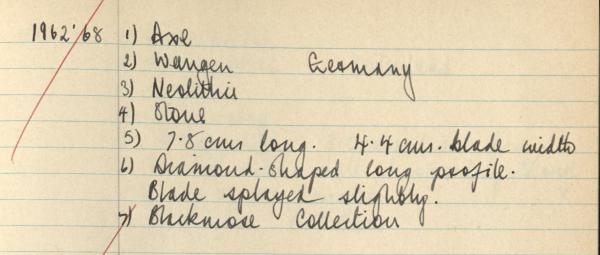 1962'68 1) Axe
2) Wangen Germany
3) Neolithic
4) Stone
5) 7.8 cms long. 4.4 cms. blade width
6) Diamond-shaped long profile.
Blade splayed slightly.
7) Blackmore Collection